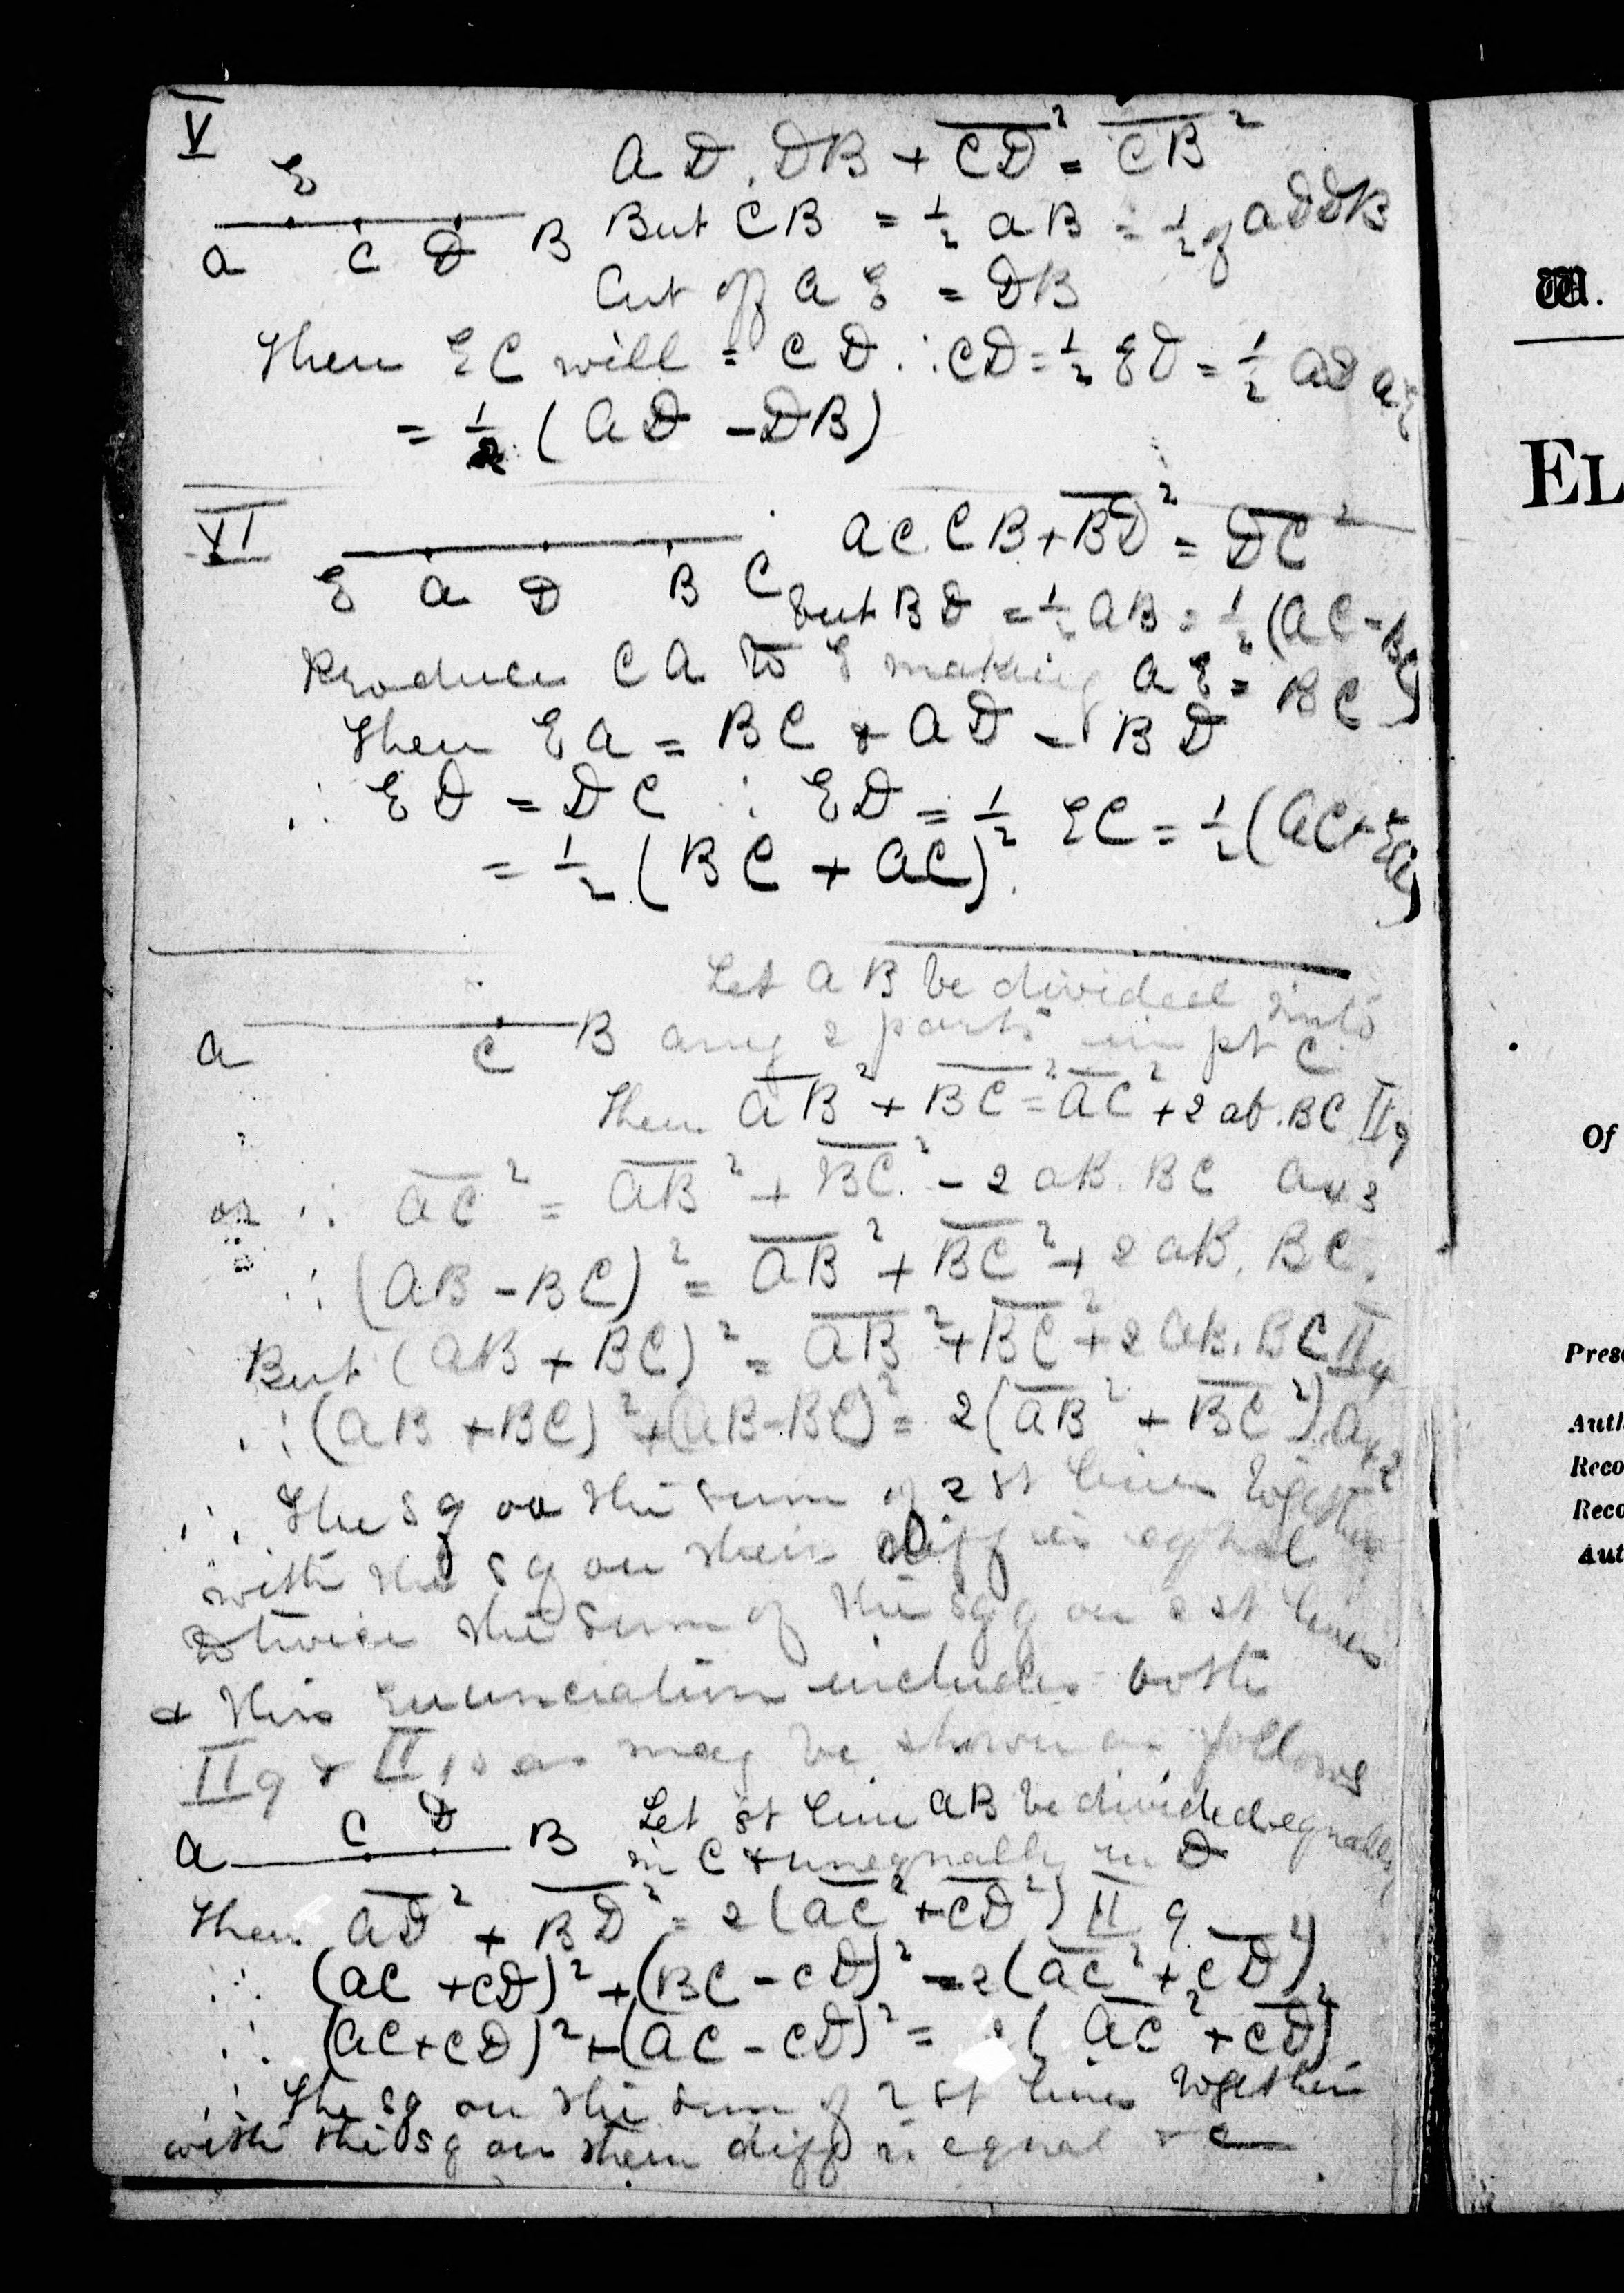 V
AD.DB + CD² = CB²
E
A C D B
But CB = ½ AB = ½ of AD DB
Cut off AE = DB
Then EC will = CD ∴ CD = ½ ED = ½ AD AE
= ½ (AD - DB)
VI
AC.CB + BD² = DC²
E A D B C
but BD = ½ AB = ½ (AC - BC)
Produce CA to E making AE = BC
Then EA = BC & AD = BD
∴ ED = DC ∴ ED = ½ EC = ½ (AC + EA)
= ½ (BC + AC)²
Let AB be divided into
A C B
any 2 parts in pt C.
Then AB² + BC² = AC² + 2 AB.BC II 9
or ∴ AC² = AB² + BC² - 2 AB.BC Ax 3
∴ (AB - BC)² = AB² + BC² + 2 AB.BC.
But (AB + BC)² = AB² + BC² + 2 AB.BC II 4
∴ (AB + BC)² + (AB - BC)² = 2(AB² + BC²) Ax 2
∴ The sq on the sum of 2 st lines together
with the sq on their diff is equal
to twice the sum of the sqq on 2 st lines
& this enunciation includes both
II 9 & II 10 as may be shown as follows
A C D B
Let st line AB be divided equally
in C & unequally in D
Then AD² + BD² = 2(AC² + CD²) II 9
∴ (AC + CD)² + (BC - CD)² = 2(AC² + CD²)
∴ (AC + CD)² + (AC - CD)² = (AC² + CD²)
∴ The sq on the sum of 2 st lines together
with the sq on their diff is equal &c
W.
EL
Of
Pres
Auth
Reco
Reco
Aut